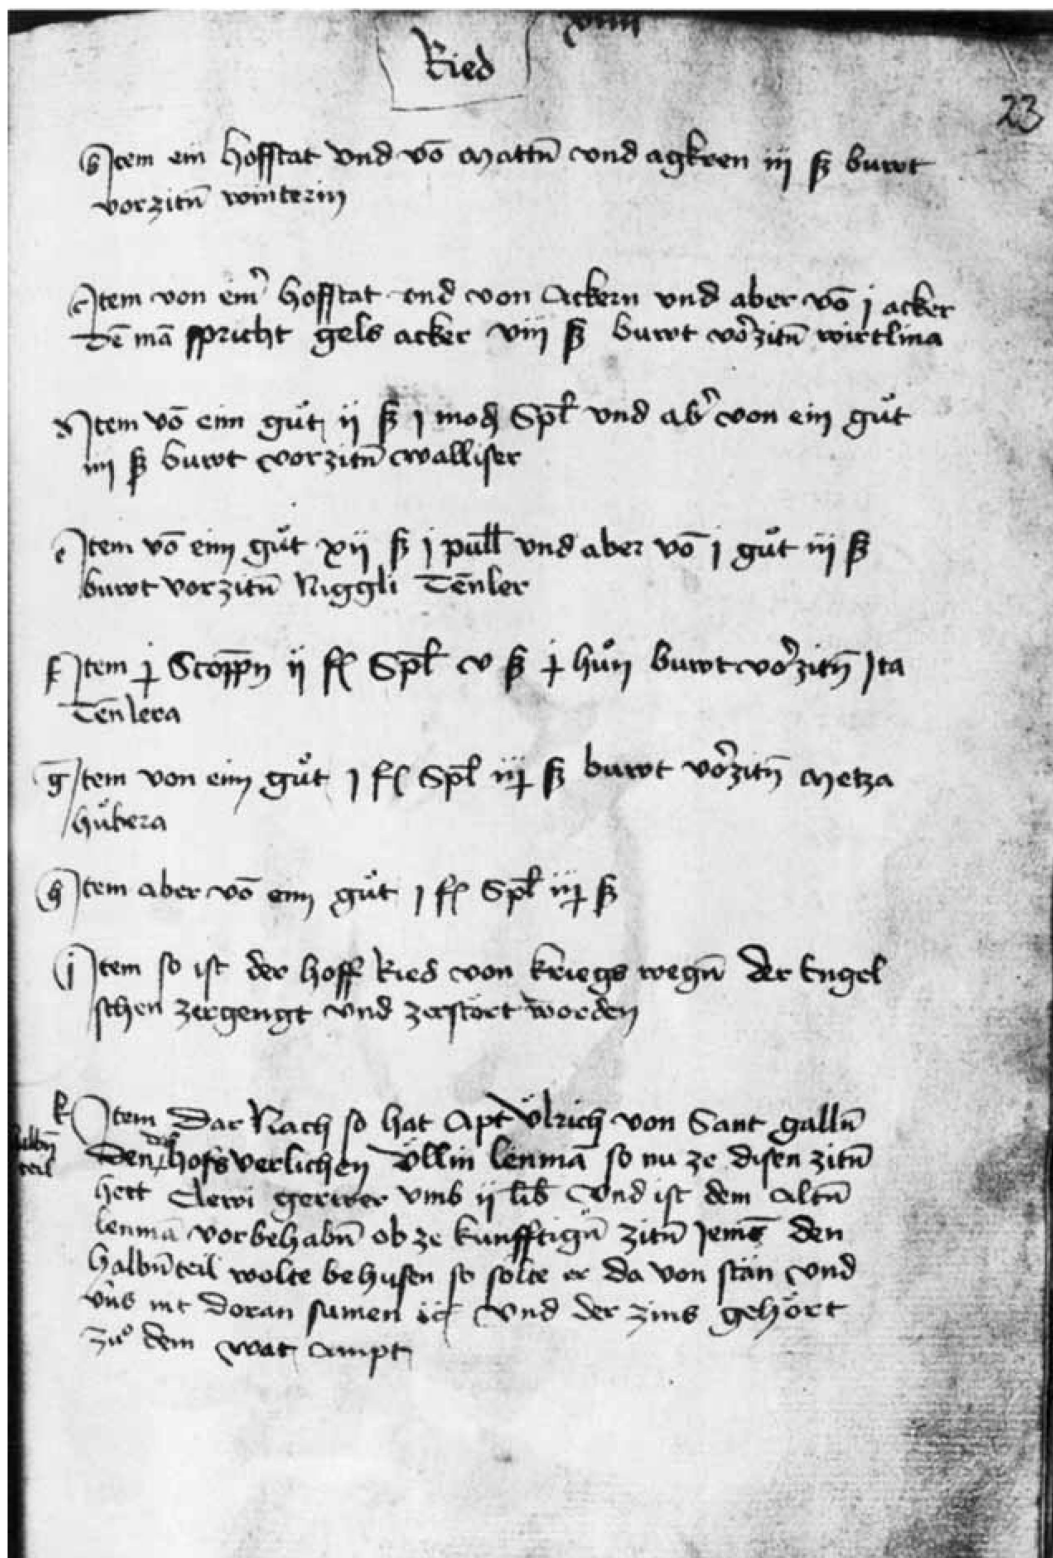 xviiii
Ried
23
b Item ein hofstat vnd võ mattñ vnd agkren iij ß buwt
vorzitñ winterin
c Item von eim̾ hofstat vnd von Ackern vnd aber võ j acker
dẽ mã spricht gels acker viij ß buwt vorzitñ wirtlina
d Item võ eim guͦt ij ß j mod Spl̄ vnd ab̾ von eim guͦt
iiij ß buwt vorzitñ walliser
e Item võ eim guͦt xij ß j pull̄ vnd aber võ j guͦt iij ß
buwt vorzitñ Niggli Tẽnler
f Item j Scoppñ ij Spl̄ v ß j huͦn buwt vorzitñ Ita
Tẽnlera
g Item von eim guͦt j Spl̄ ß buwt vorzitñ Metza
huͦbera
h Item aber võ eim guͦt j Spl̄ ß
i Item so ist der hoff Ried von kriegs wegñ der Engel
schen zergengt vnd zerstört worden
k Item Dar Nach so hat Apt Vͦlrich von Sant gallñ
halbñ
teil
den hofs verlichen Vͤllin lenmã so nu ze disen zitñ
hett Clewi gerwer vmb ij lib̄ Vnd ist dem altñ
lenmã vorbehabñ ob ze kunfftigñ zitñ jemã den
halbñ teil wolte behusen so solte er da von stän vnd
vns nit doran sumen vnd der zins gehört
zuͦ dem wat ampt